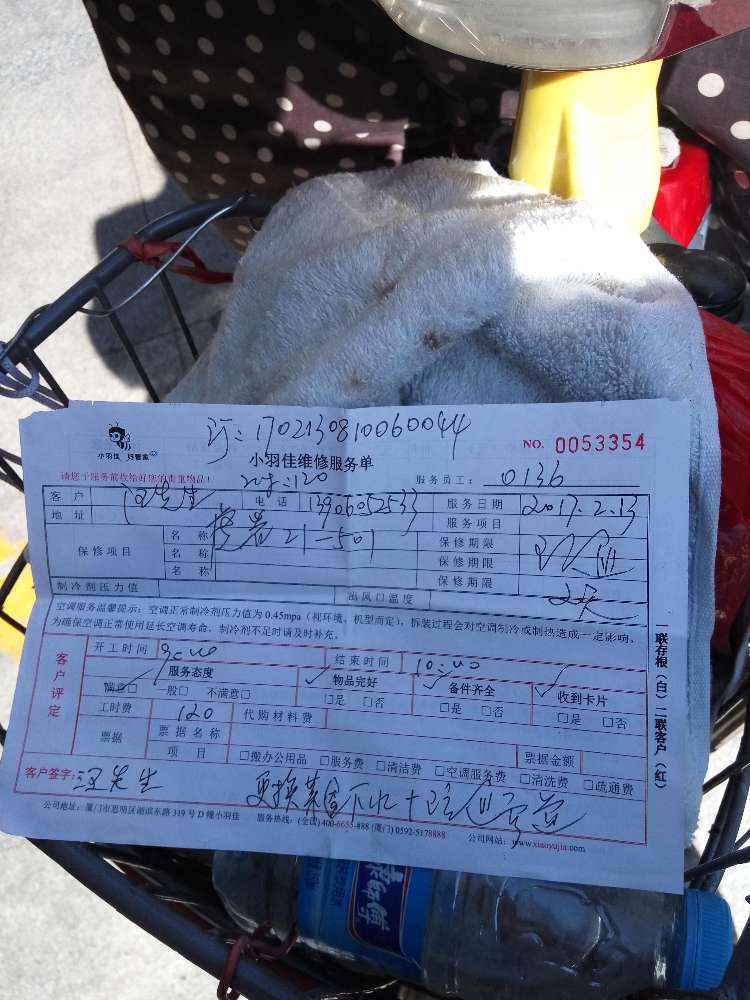 订:170213081006004​4
小羽佳 好管家 NO. 0053354
小羽佳维修服务单
请您于服务前收检好您的贵重物品! 服务员工: 0136
客户 汪先生 电话 13906052533 服务日期 2017.2.13
地址 21-501 服务项目
保修项目 名称 保修期限
名称 保修期限
名称 保修期限
制冷剂压力值 出风口温度 2天
空调服务温馨提示:空调正常制冷剂压力值为0.45mpa(视环境、机型而定),拆装过程会对空调制冷或制热造成一定影响,
为确保空调正常使用延长空调寿命,制冷剂不足时请及时补充。
客户评定
开工时间 9:00 结束时间 10:00
服务态度 物品完好 备件齐全 收到卡片
满意□ 一般□ 不满意□ □是 □否 □是 □否 □是 □否
工时费 120 代购材料费
票据 票据名称 票据金额
项目 □搬办公用品 □服务费 □清洁费 □空调服务费 □清洗费 □疏通费
客户签字: 汪先生 更换 下水
公司地址:厦门市思明区湖滨东路319号D幢小羽佳 服务热线:(全国)400-6655-888 (厦门)0592-5178888 公司网站:www.xiaoyujia.com
一联存根(白)二联客户(红)
康师傅